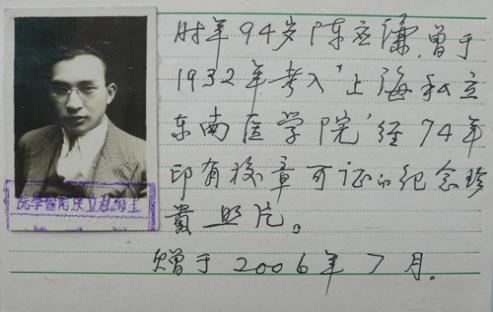 时年94岁陈应谦,曾于
1932年考入"上海私立
东南医学院"经74年
印有校章可证的纪念珍
贵照片。
赠于2006年7月.